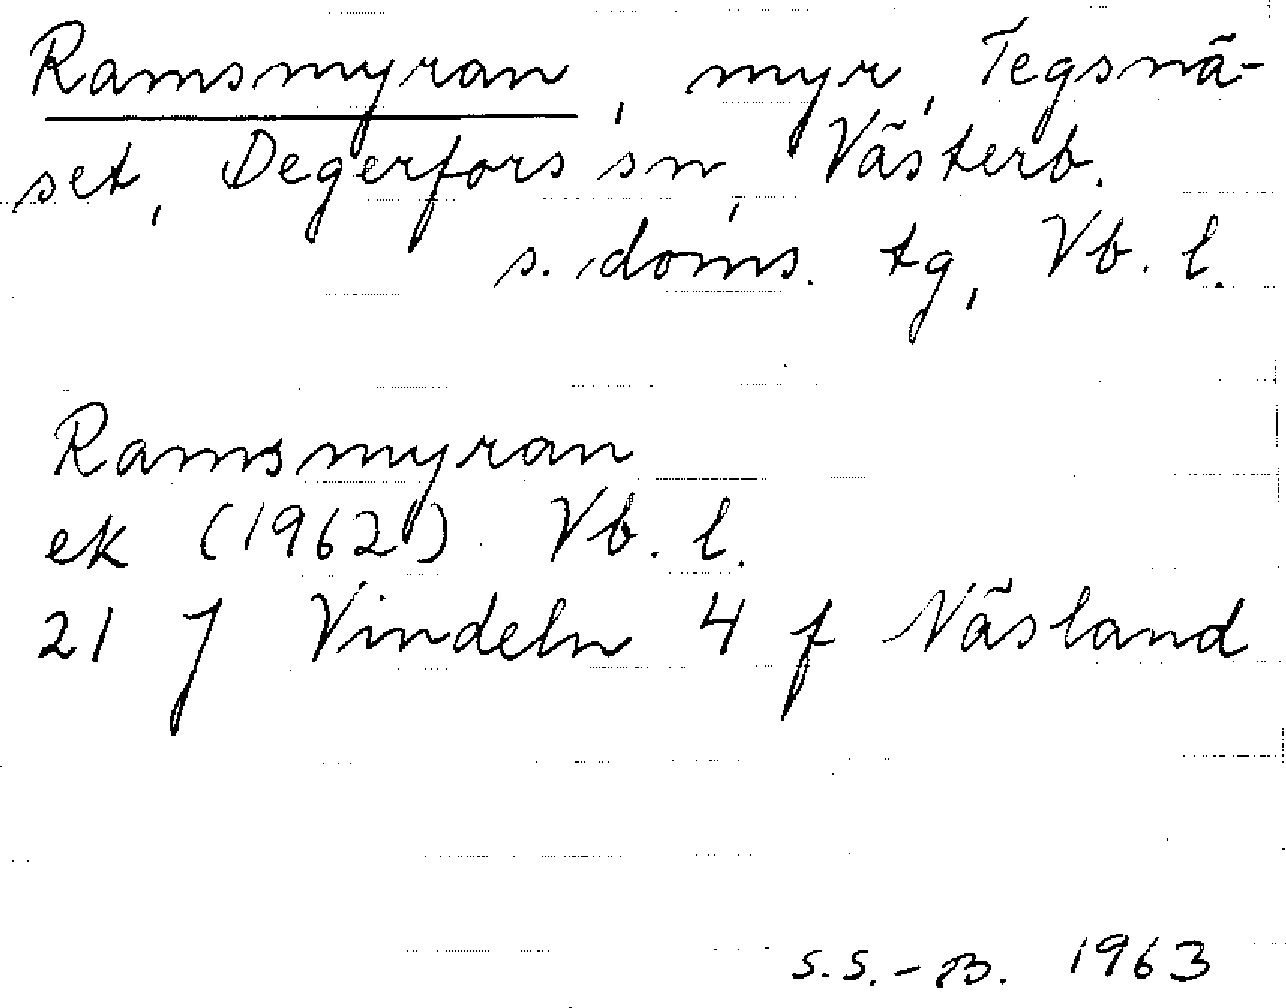 Ramsmyran, myr, Tegsnä-
set, Degerfors sn, Västerb.
s. doms. tg, Vb. l.
Ramsmyran
ek (1962). Vb. l.
21 J Vindeln 4 f Näsland
S.S.-B. 1963